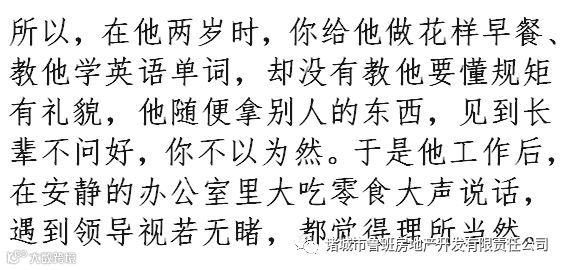 所以，在他两岁时，你给他做花样早餐、
教他学英语单词，却没有教他要懂规矩
有礼貌，他随便拿别人的东西，见到长
辈不问好，你不以为然。于是他工作后，
在安静的办公室里大吃零食大声说话，
遇到领导视若无睹，都觉得理所当然。
诸城市鲁班房地产开发有限责任公司